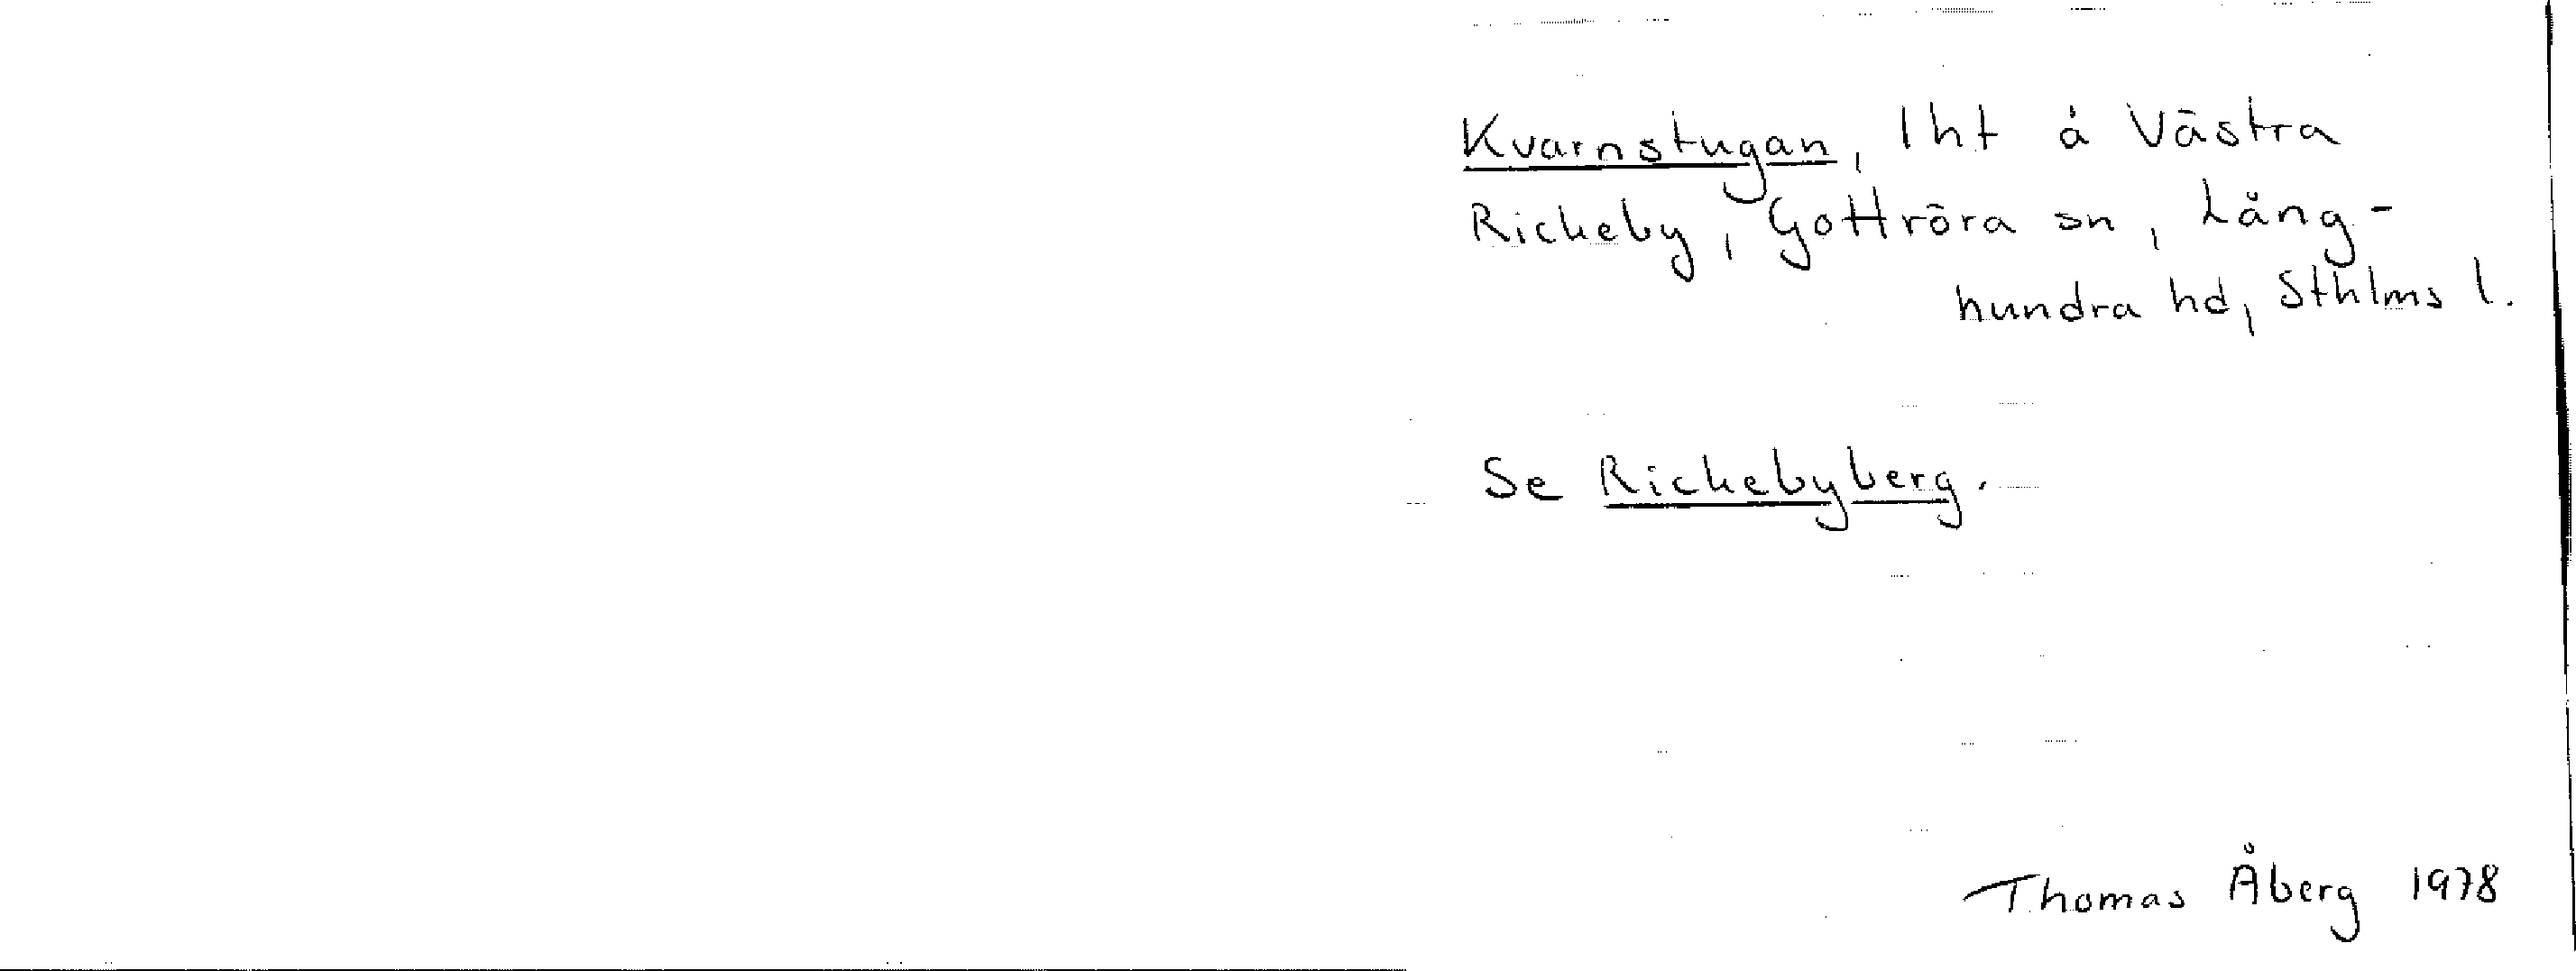 Kvarnstugan, lht å Västra
Rickeby, Gottröra sn, Lång-
hundra hd, Sthlms l.
Se Rickebyberg.
Thomas Åberg 1978